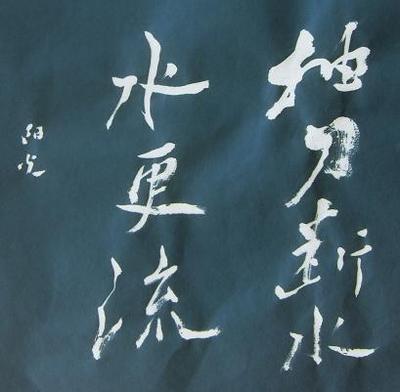 抽刀断水
水更流